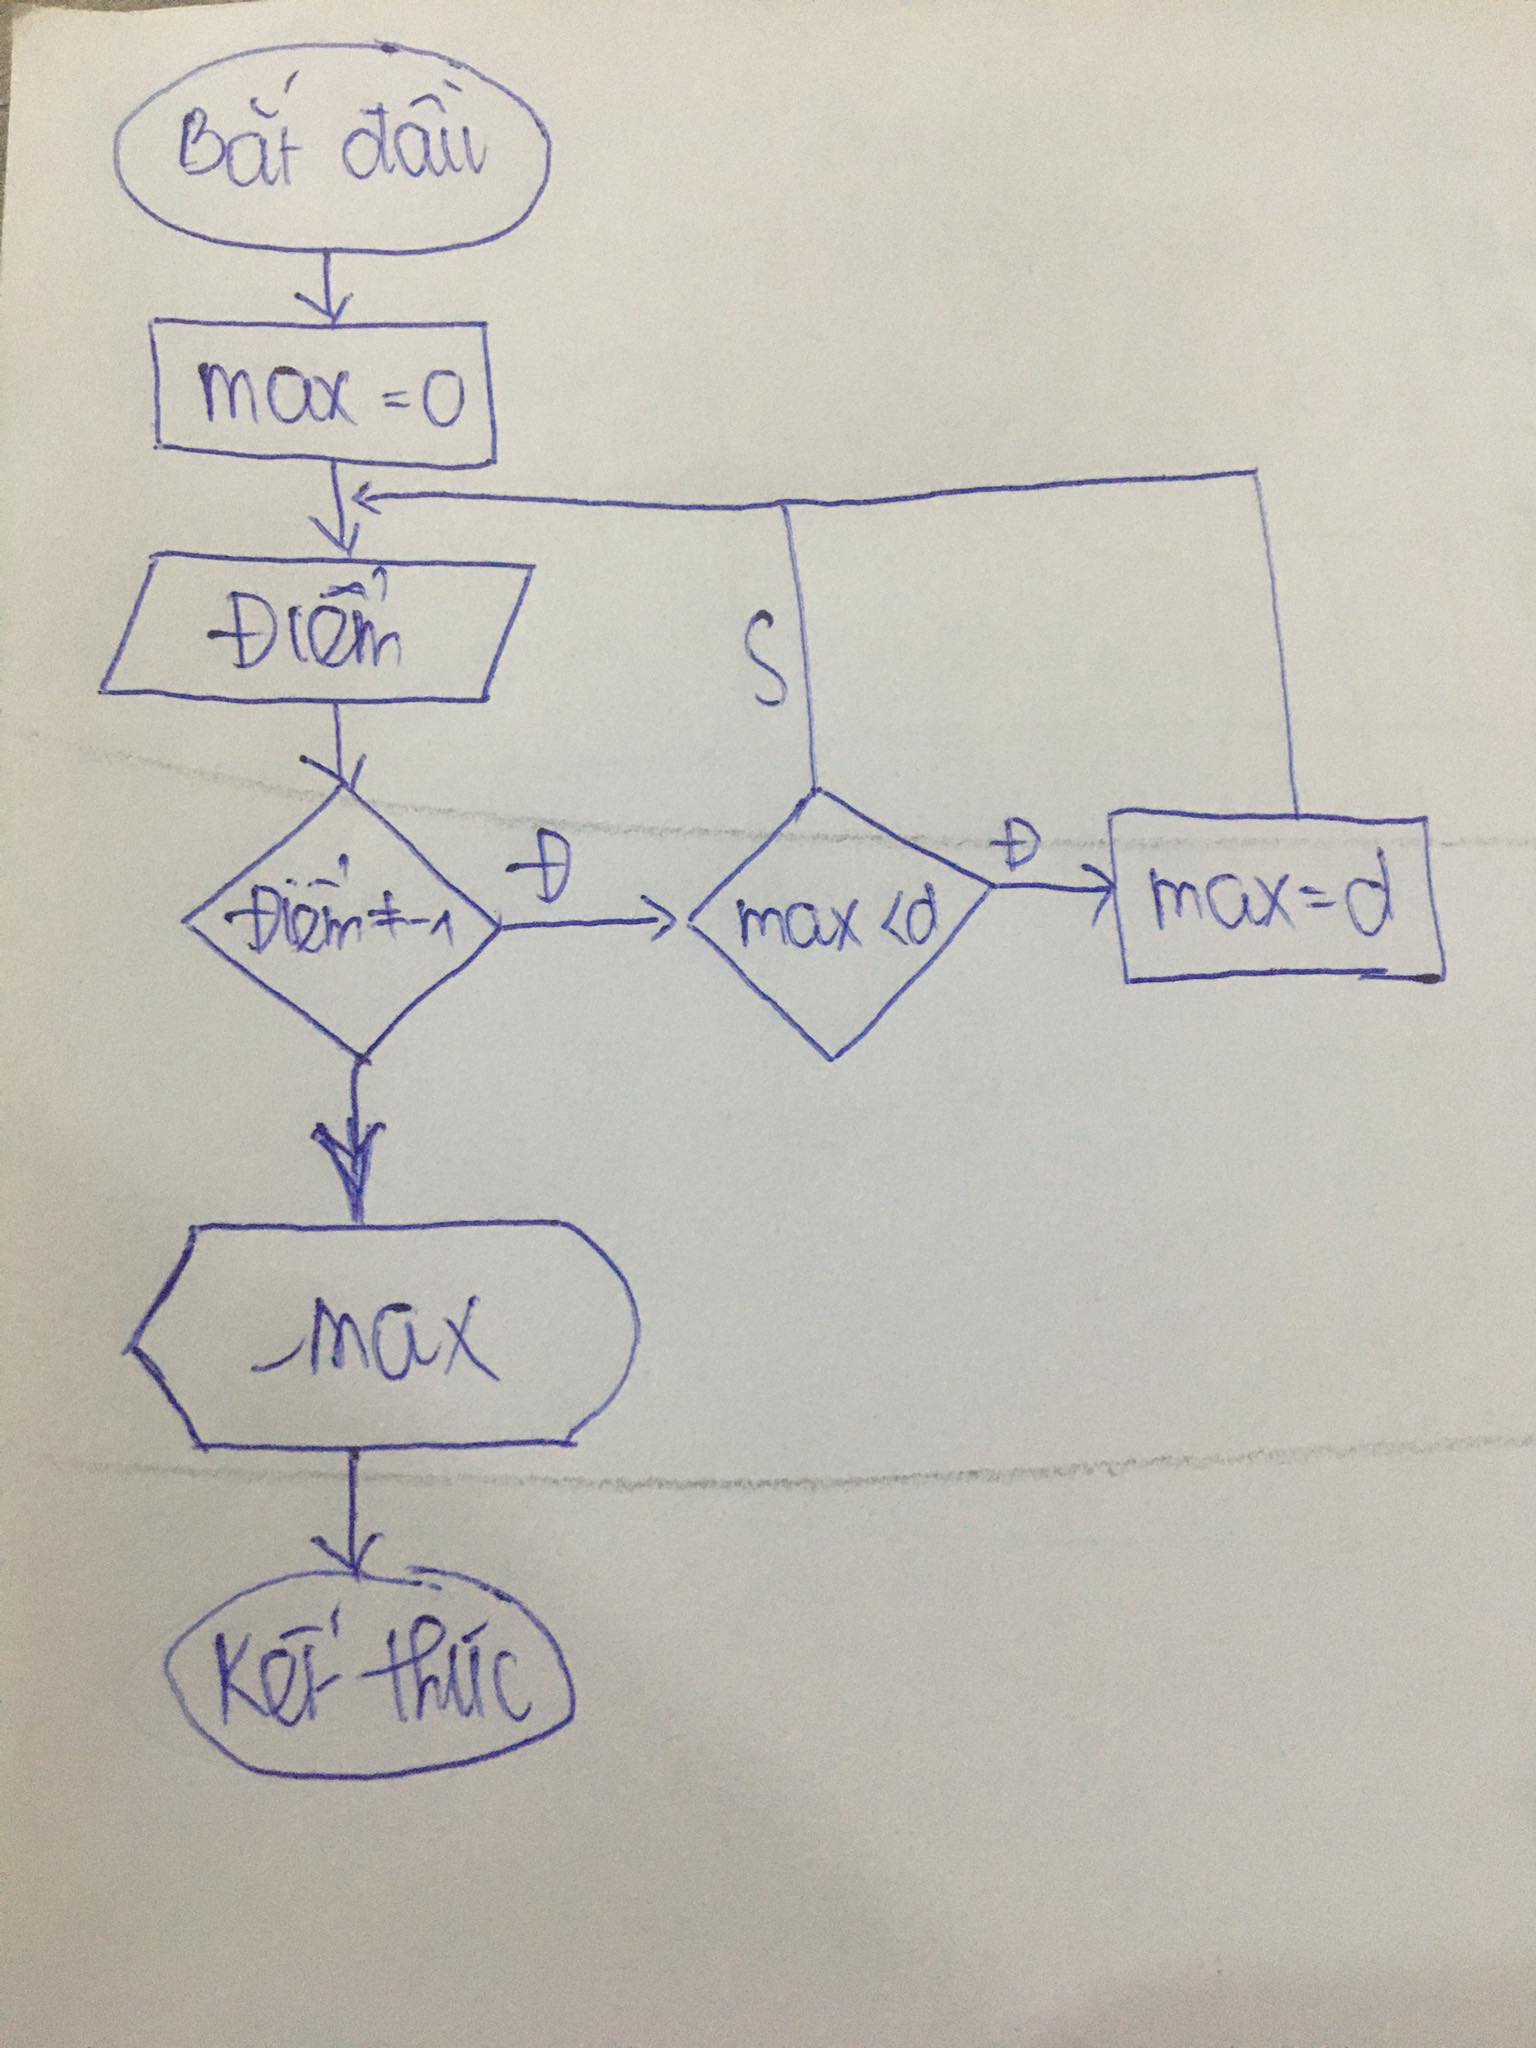 Bắt đầu
max = 0
Điểm
S
Điểm ≠ -1
Đ
max < d
Đ
max = d
max
Kết thúc